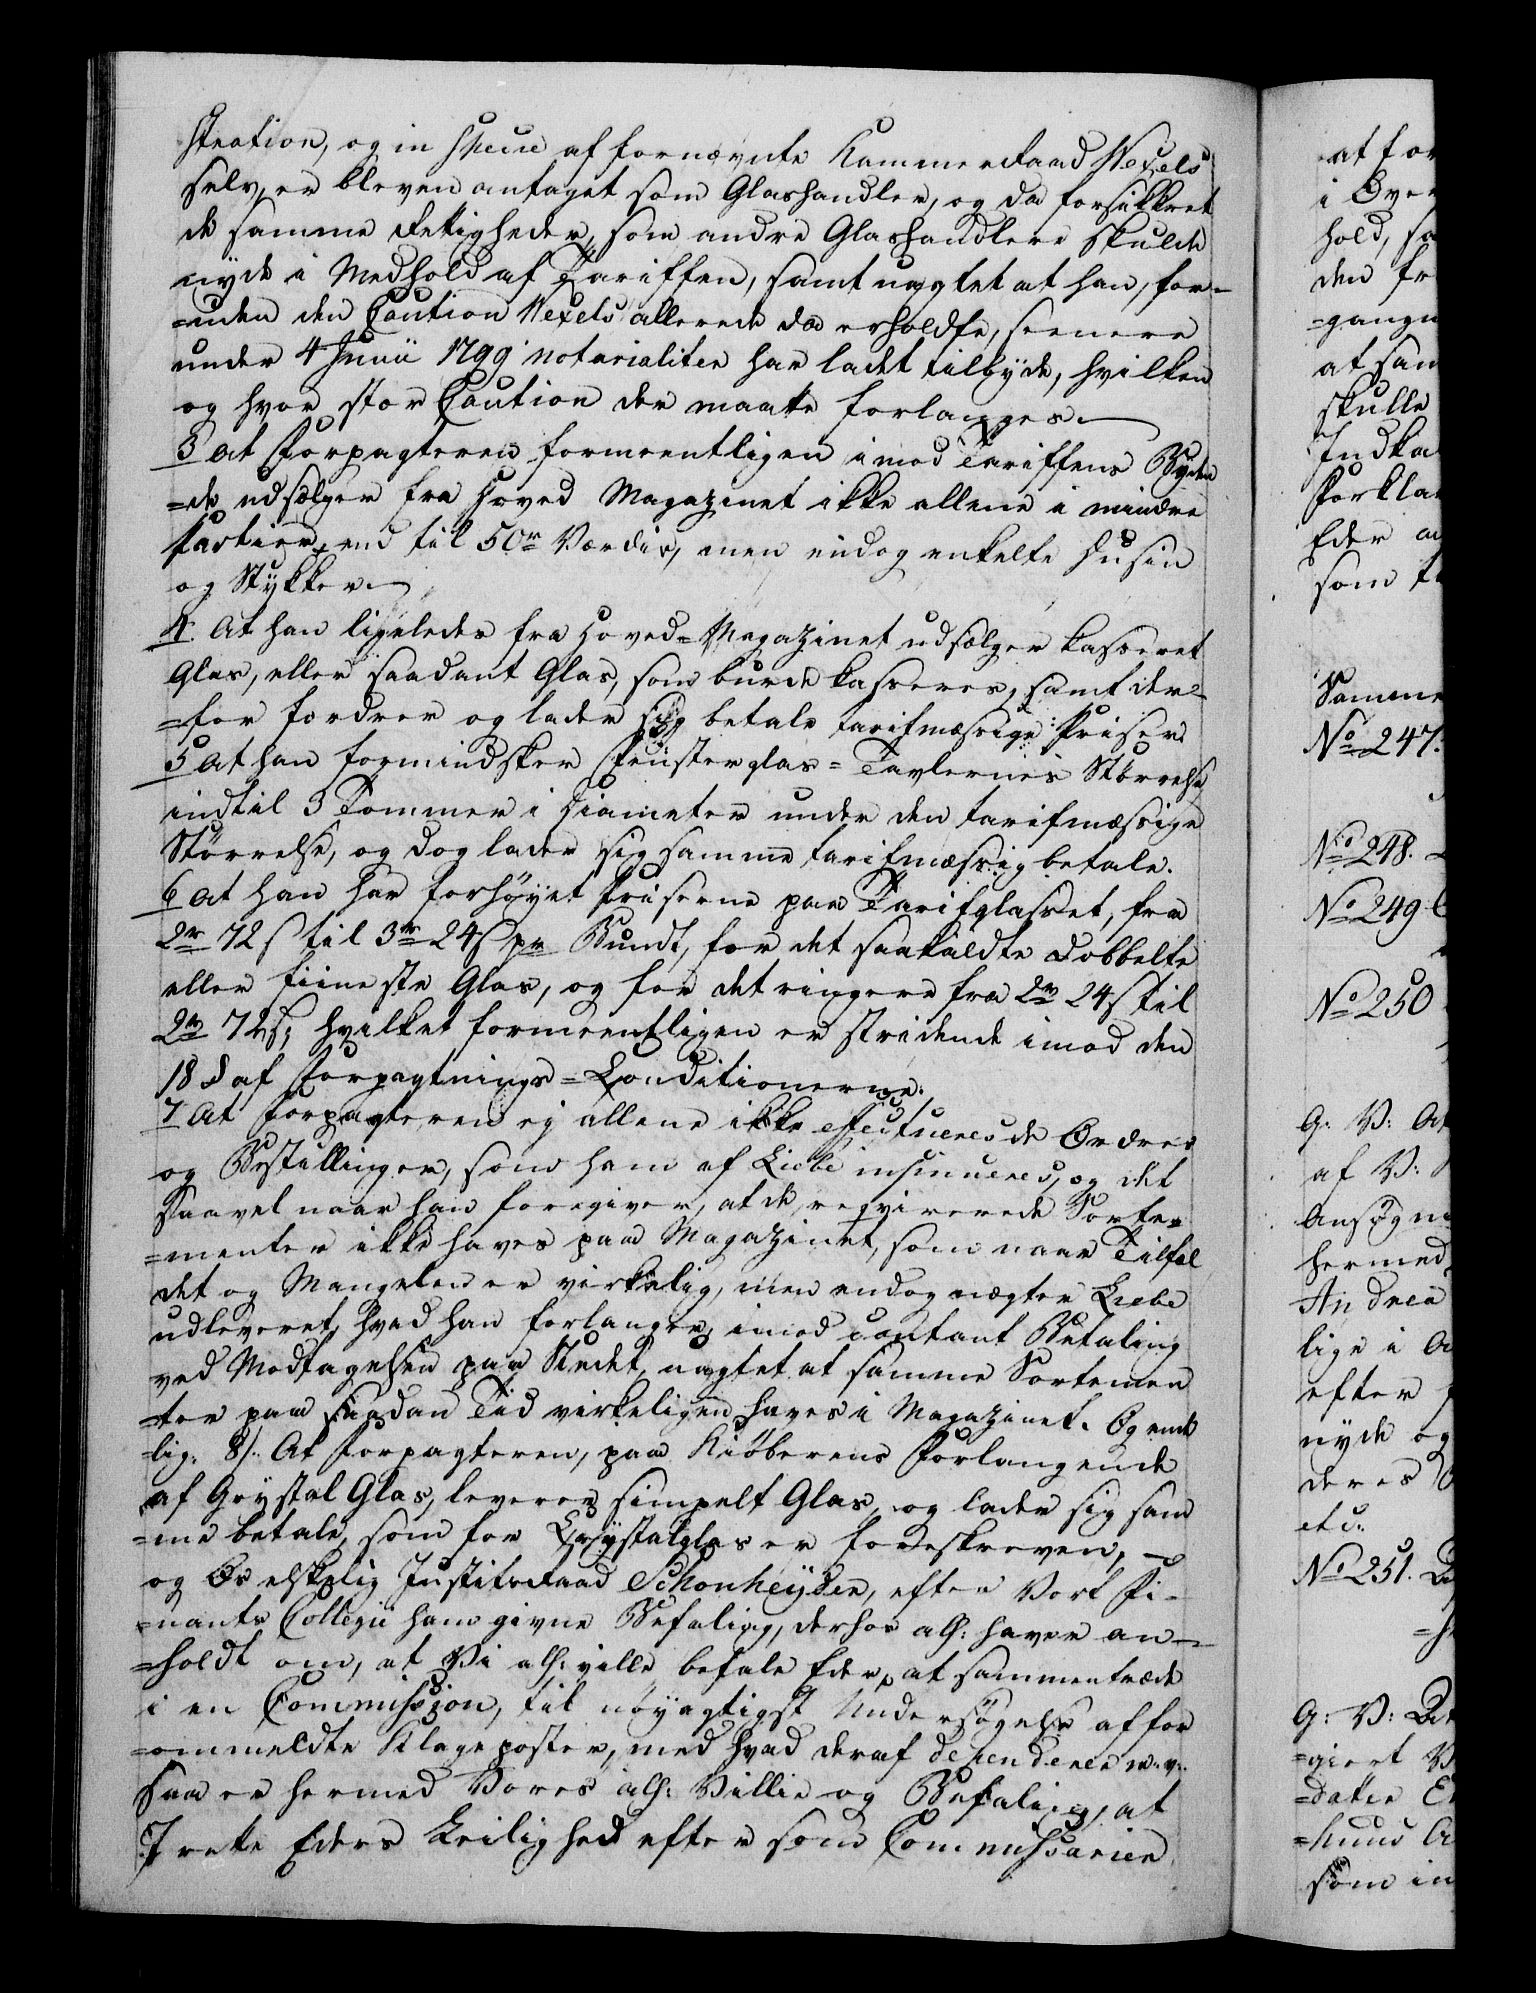 stration, og in specie af fornævnte Kammerraad Wexels
selv, er bleven antaget som Glashandler, og da forsikkret
de samme Rettigheder, som andre Glashandlere skulde
nyde i Medhold af Tariffen, samt uagtet at han, for-
=uden den Caution Wexels allerede da erholdte, seenere
under 4 Junii 1799 notarialiter har ladet tilbyde, hvilken
og hvor stor Caution der maatte forlanges.
3 At Forpagteren formeentligen imod Tariffens Byden
=de udsælger fra Hoved Magazinet ikke allene i mindre
Partier, end til 50 rd Værdie, men endog enkelte Dusin
og Stykker.
4. At han ligeledes fra Hoved=Magazinet udsælger kasseret
Glas, eller saadant Glas, som burde kasseres, samt der=
=for fordrer og lader sig betale tarifmæssige Priser.
5 At han formindsker Fensterglas=Tavlernes Størrelse
indtil 3 Tommer i Diameter under den tarifmæssige
Størrelse, og dog lader sig samme tarifmæssig betale.
6 At han har forhøyet Priserne paa Tarifglasset, fra
2 rd 72 s til 3 rd 24 s pr Bundt, for det saakaldte dobbelte
eller fiineste Glas, og for det ringere fra 2 rd 24 s til
2 rd 72 s; hvilket formeentligen er stridende imod den
18 § af Forpagtnings=Conditionerne.
7 At Forpagteren ej allene ikke effectuerer de Ordres
og Bestillinger, som ham af Liebe insinueres, og det
saavel naar han foregiver, at de reqvirerede Sorte=
=menter ikke haves paa Magazinet, som naar Tilfæl
det og Mangelen er virkelig, men endog nægter Liebe
udleveret, hvad han forlanger, imod contant Betaling
ved Modtagelsen paa Stedet, uagtet at samme Sortemen
=ter paa saadan Tid virkeligen haves i Magazinet. Og ende
=lig: 8/. At Forpagteren, paa Kiøberens Forlangende
af Crystal Glas, leverer simpelt Glas, og lader sig sam
=me betale, som for Crystalglas er foreskreven, —
og Os elskelig Justitsraad Schonheyder, efter Vort Fi-
=nants Collegii ham givne Befaling, derhos alh: haver an-
=holdt om, at Vi alh: ville befale Eder, at sammentræde
i en Commission, til nøyagtigst Undersøgelse af for
=ommeldte Klageposter, med hvad deraf dependerer m: v:
Saa er hermed Vores alh: Villie og Befaling, at
I rette Eders Leilighed efter som Commissarier
at for
i Over
hold, sa
den fr
=gangn
at sam
skulle
Indka
Forkla
Eder a
som t
Samme
No 247.
No 248.
No 249
No 250
G: V: At
af V:
Ansøgni
hermed
Andrea
lige i A
efter
nyde og
deres
etc.
No 251.
G: V:
=giert
=datter
som in